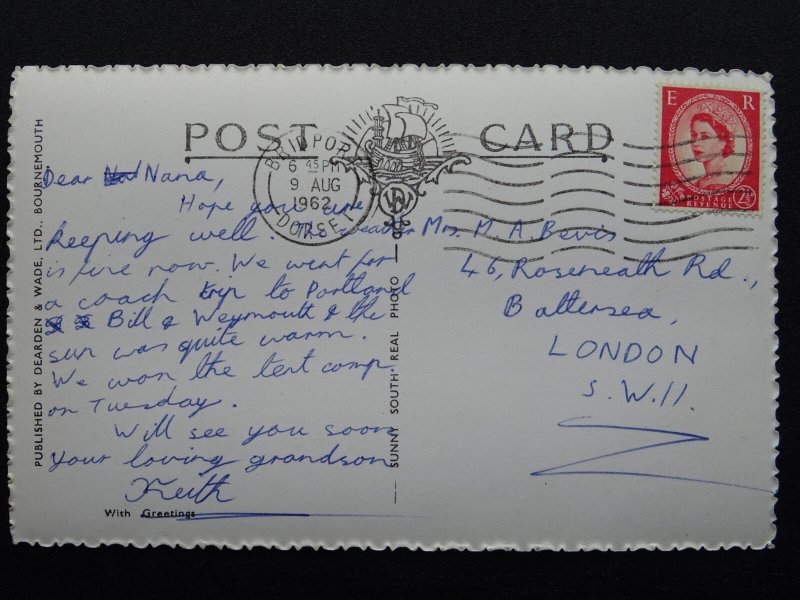 POST CARD
PUBLISHED BY DEARDEN & WADE, LTD., BOURNEMOUTH
BRIDPORT
6 45 PM
9 AUG
1962
DORSET
E R
POSTAGE
REVENUE
2½
Dear Nana,
Hope you are
keeping well. The weather
is fine now. We went for
a coach trip to Portland
Bill & Weymouth & the
sun was quite warm.
We won the tent comp.
on Tuesday.
Will see you soon
Your loving grandson
Keith
With Greetings
SUNNY SOUTH REAL PHOTO
Mrs. M. A. Bevis
46, Roseneath Rd.,
Battersea,
LONDON
S.W.11.